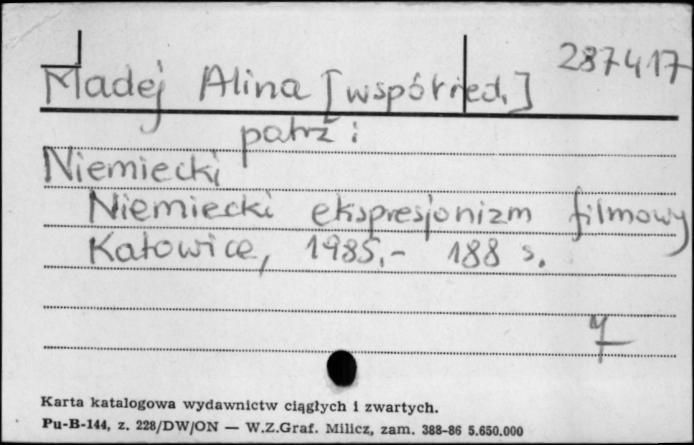 287417
Madej Alina [współred.]
patrz:
Niemiecki
Niemiecki ekspresjonizm filmowy
Katowice, 1985.- 188 s.
7
Karta katalogowa wydawnictw ciągłych i zwartych.
Pu-B-144, z. 228/DW/ON — W.Z.Graf. Milicz, zam. 388-86 5.650.000